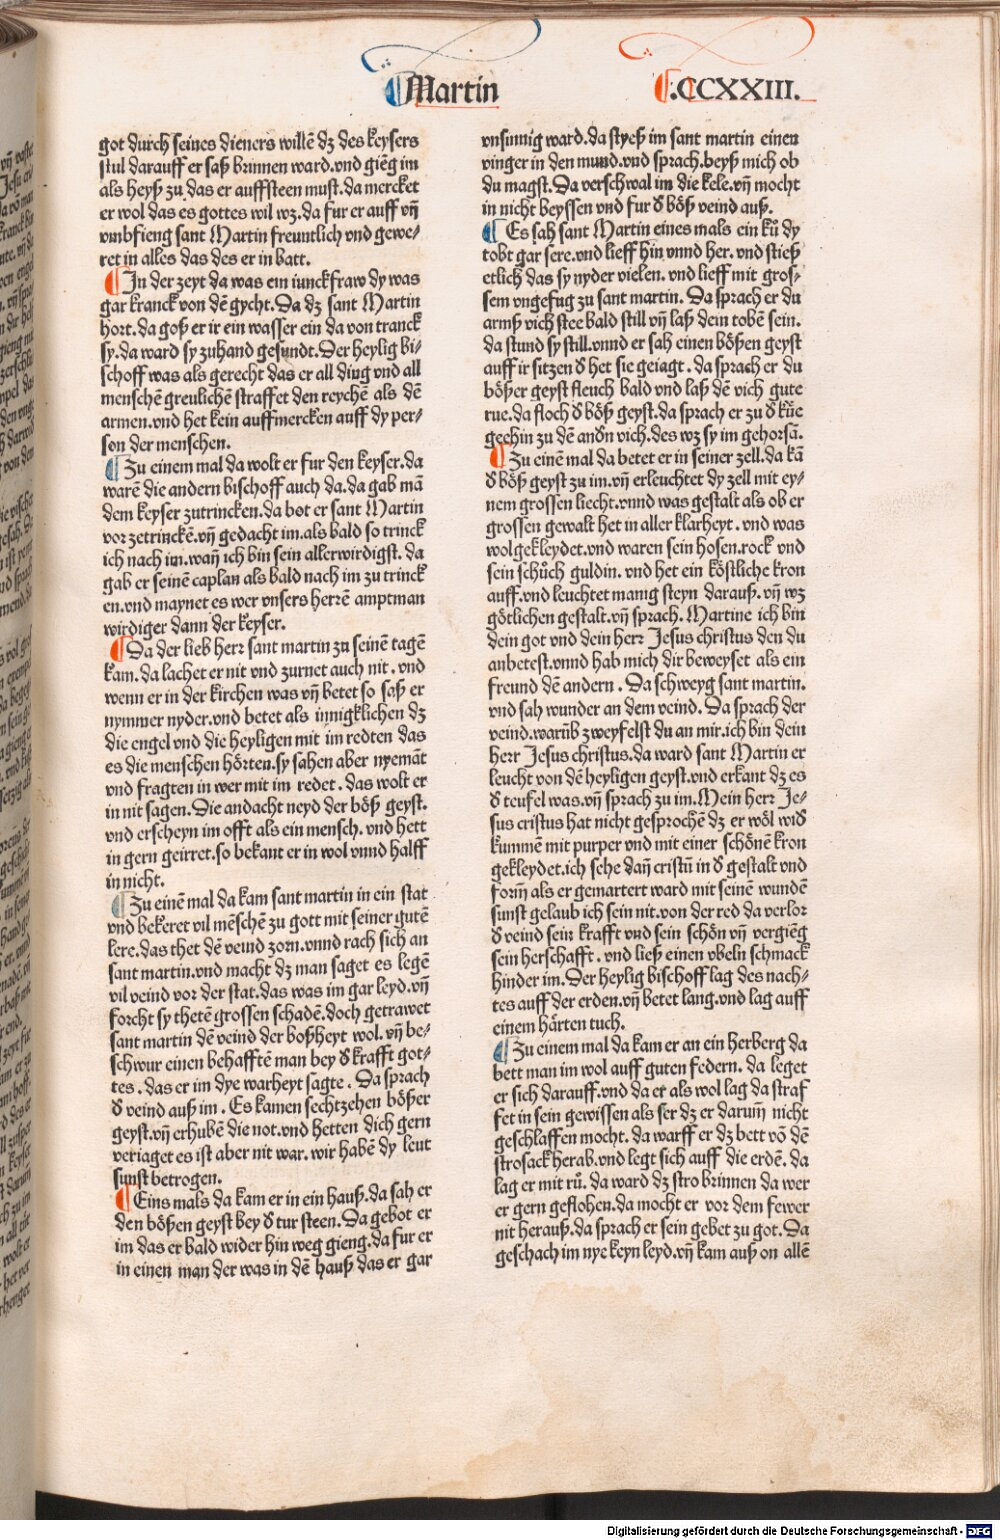 Martin
.CCXXIII.
got durch seines dieners willē dz des keysers
stul darauff er saß brinnen ward.vnd giēg im
als heyß zu das er auffsteen must.da mercket
er wol das es gottes wil wz.da fur er auff vn̄
vmbfieng sant Martin freuntlich vnd gewe⸗
ret in alles das des er in batt.
In der zeyt da was ein iunckfraw dy was
gar kranck von dē gycht.Da dz sant Martin
hort.da goß er ir ein wasser ein da von tranck
sy.da ward sy zuhand gesundt.Der heylig bi⸗
schoff was als gerecht das er all ding vnd all
menschē greulichē straffet den reychē als dē
armen.vnd het kein auffmercken auff dy per⸗
son der menschen.
Zu einem mal da wolt er fur den keyser.da
warē die andern bischoff auch da.da gab mā
dem keyser zutrincken.da bot er sant Martin
vor zetrinckē.vn̄ gedacht im.als bald so trinck
ich nach im.wan̄ ich bin sein allerwirdigst. da
gab er seinē caplan als bald nach im zu trinck
en.vnd maynet es wer vnsers herrē amptman
wirdiger dann der keyser.
Da der lieb herr sant martin zu seinē tagē
kam.da lachet er nit vnd zurnet auch nit. vnd
wenn er in der kirchen was vn̄ betet so saß er
nymmer nyder.vnd betet als innigklichen dz
die engel vnd die heyligen mit im redten das
es die menschen hörten.sy sahen aber nyemāt
vnd fragten in wer mit im redet. das wolt er
in nit sagen.Die andacht neyd der böß geyst.
vnd erscheyn im offt als ein mensch. vnd hett
in gern geirret.so bekant er in wol vnnd halff
in nicht.
Zu einē mal da kam sant martin in ein stat
vnd bekeret vil mēschē zu gott mit seiner gutē
lere.das thet dē veind zorn.vnnd rach sich an
sant martin.vnd macht dz man saget es legē
vil veind vor der stat.das was im gar leyd.vn̄
forcht sy thetē grossen schadē.doch getrawet
sant martin dē veind der boßheyt wol. vn̄ be⸗
schwur einen behafftē man bey d̕ krafft got⸗
tes. das er im dye warheyt sagte. Da sprach
d̕ veind auß im. Es kamen sechtzehen bößer
geyst.vn̄ erhubē die not.vnd hetten dich gern
veriaget es ist aber nit war. wir habē dy leut
sunst betrogen.
Eins mals da kam er in ein hauß.da sah er
den bößen geyst bey d̕ tur steen.Da gebot er
im das er bald wider hin weg gieng.da fur er
in einen man der was in dē hauß das er gar
vnsinnig ward.da styeß im sant martin einen
vinger in den mund.vnd sprach.beyß mich ob
du magst.Da verschwal im die kele.vn̄ mocht
in nicht beyssen vnd fur d̕ böß veind auß.
Es sah sant Martin eines mals ein ků dy
tobt gar sere.vnd lieff hin vnnd her. vnd stieß
etlich das sy nyder vielen. vnd lieff mit gros⸗
sem vngefug zu sant martin. Da sprach er du
armß vich stee bald still vn̄ laß dein tobē sein.
da stund sy still.vnnd er sah einen bößen geyst
auff ir sitzen d̕ het sie geiagt. da sprach er du
bößer geyst fleuch bald vnd laß dē vich gute
rue.da floch d̕ böß geyst.da sprach er zu d̕ kůe
geehin zu dē and̕n vich.des wz sy im gehorsā.
Zu einē mal da betet er in seiner zell.da kā
d̕ böß geyst zu im.vn̄ erleuchtet dy zell mit ey⸗
nem grossen liecht.vnnd was gestalt als ob er
grossen gewalt het in aller klarheyt. vnd was
wolgekleydet.vnd waren sein hosen.rock vnd
sein schůch guldin. vnd het ein köstliche kron
auff.vnd leuchtet manig steyn darauß. vn̄ wz
götlichen gestalt.vn̄ sprach. Martine ich bin
dein got vnd dein herr Jesus christus den du
anbetest.vnnd hab mich dir beweyset als ein
freund dē andern. Da schweyg sant martin.
vnd sah wunder an dem veind. Da sprach der
veind.warūb zweyfelst du an mir.ich bin dein
herr Jesus christus.da ward sant Martin er
leucht von dē heyligen geyst.vnd erkant dz es
d̕ teufel was.vn̄ sprach zu im.Mein herr Je⸗
sus cristus hat nicht gesprochē dz er wöl wid̕
kummē mit purper vnd mit einer schönē kron
gekleydet.ich sehe dan̄ cristū in d̕ gestalt vnd
form̄ als er gemartert ward mit seinē wundē
sunst gelaub ich sein nit.von der red da verlor
d̕ veind sein krafft vnd sein schön vn̄ vergiēg
sein herschafft. vnd ließ einen vbeln schmack
hinder im.Der heylig bischoff lag des nach⸗
tes auff der erden.vn̄ betet lang.vnd lag auff
einem härten tuch.
Zu einem mal da kam er an ein herberg da
bett man im wol auff guten federn. da leget
er sich darauff.vnd da er als wol lag da straf
fet in sein gewissen als ser dz er darum̄ nicht
geschlaffen mocht. da warff er dz bett vō dē
strosack herab.vnd legt sich auff die erdē. da
lag er mit rů. da ward dz stro brinnen da wer
er gern geflohen.da mocht er vor dem fewer
nit herauß.da sprach er sein gebet zu got. Da
geschach im nye keyn leyd.vn̄ kam auß on allē
Digitalisierung gefördert durch die Deutsche Forschungsgemeinschaft - DFG